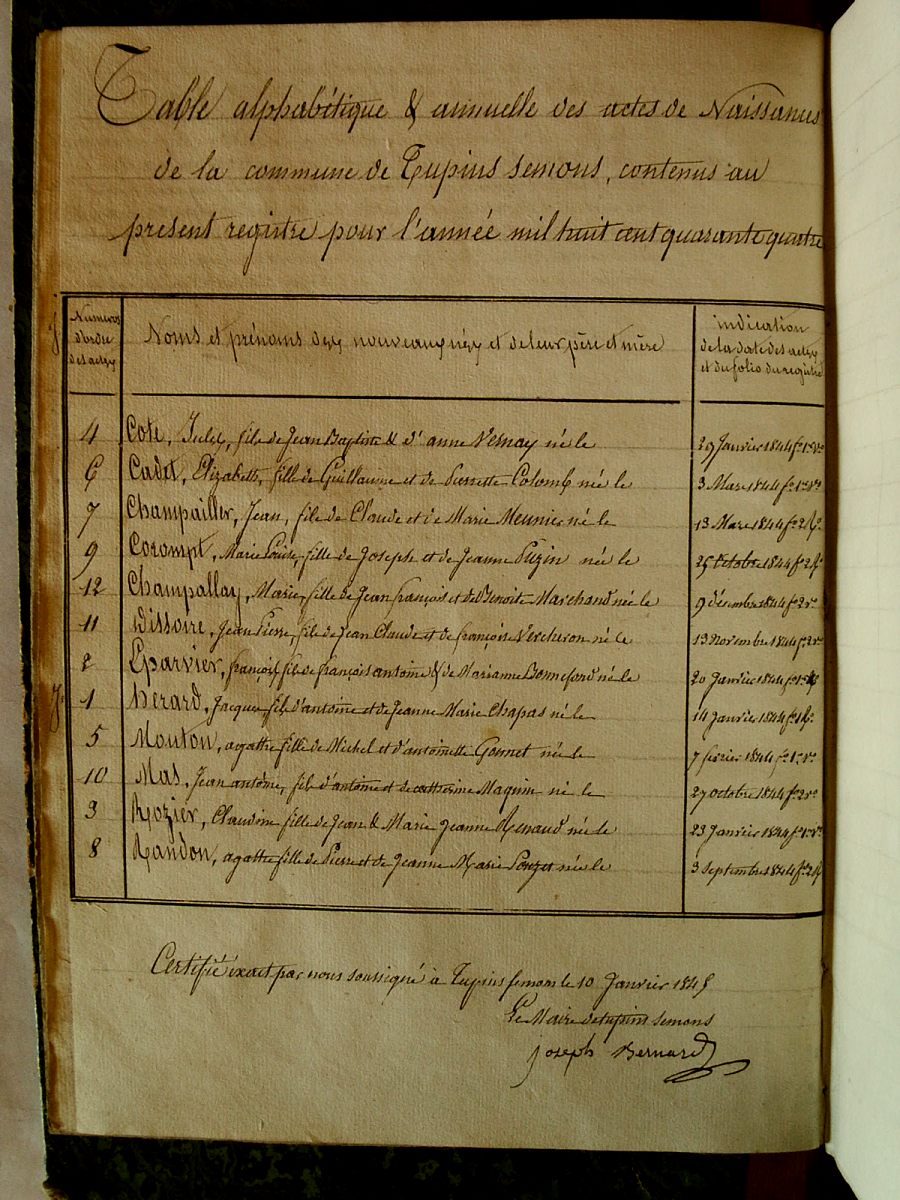 Table alphabétique & annuelle des actes de Naissances
de la commune de Tupins semons, contenus au
présent registre pour l'année mil huit cent quarante quatre
Numéros d'ordre des actes
Noms et prénoms des nouveaux nés et de leur père et mère
indication de la date des actes et du folio du registre
4 Cote, Jules, fils de Jean Baptiste & d'anne Vernay né le 29 Janvier 1844 f° 1er v°
6 Cadet, Elizabeth, fille de Guillaume et de Pierrette Colomb née le 3 Mars 1844 f° 1er v°
7 Champailler, Jean, fils de Claude et de Marie Meunier né le 13 Mars 1844 f° 2 r°
9 Corompt, Marie Louise, fille de Joseph et de Jeanne Puzin née le 25 Octobre 1844 f° 2 r°
12 Champallay, Marie, fille de Jean françois et de Benoite Marchand née le 9 décembre 1844 f° 2 v°
11 Dissoire, Jean Pierre, fils de Jean Claude et de françoise Vercheron né le 13 Novembre 1844 f° 2 v°
2 Eparvier, françois, fils de françois antoine & de Marianne Bonnefond né le 20 Janvier 1844 f° 1er
1 herard, Jacques fils d'antoine et de Jeanne Marie Chapas né le 14 Janvier 1844 f° 1 r°
5 Mouton, agathe fille de Michel et d'antoinette Gonnet née le 7 février 1844 f° 1er v°
10 Mas, Jean antoine, fils d'antoine et de catherine Maguin né le 27 octobre 1844 f° 2 v°
3 Rozier, Claudine fille de Jean & Marie Jeanne Renaud née le 23 Janvier 1844 f° 1er v°
8 Randon, agathe fille de Pierre et de Jeanne Marie Pouzet née le 3 septembre 1844 f° 2 r°
Certifié éxact par nous soussigné à Tupins semons le 10 Janvier 1845
Le Maire de tupins semons
Joseph Bernard